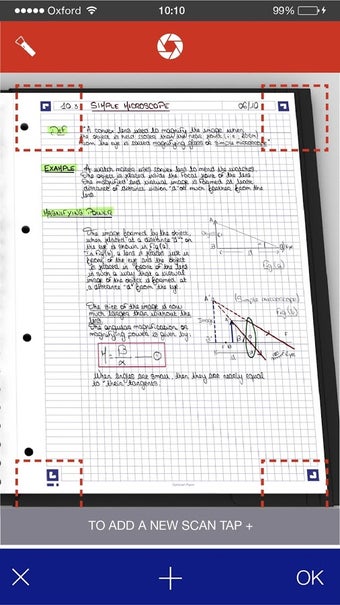 Oxford 10:10 99%
10.3 SIMPLE MICROSCOPE 06/10
DEF "A convex lens used to magnify the image when
the object is held closer than the near point (i.e., 25cm)
from the eye is called magnifying glass or simple microscope"
EXAMPLE A watch maker uses convex lens to mend the watches.
The object is placed inside the focal point of the lens.
The magnified and virtual image is formed at least
distance of distinct vision "d" or much farther from the
lens.
MAGNIFYING POWER
The image formed by the object,
when placed at a distance "d" on
the eye is shown in Fig (a).
In Fig (b) a lens is placed just in
front of the eye and the object
is placed in front of the lens
in such a way that a virtual
image of the object is formed at
a distance "d" from the eye.
Object
Eye
Fig (a)
The size of the image is now
much larger than without the
lens.
The angular magnification or
magnifying power is given by:
(Simple microscope)
Fig (b)
Image
M = β/α
When angles are small, then they are nearly equal
to "their" tangents.
TO ADD A NEW SCAN TAP +
× + OK